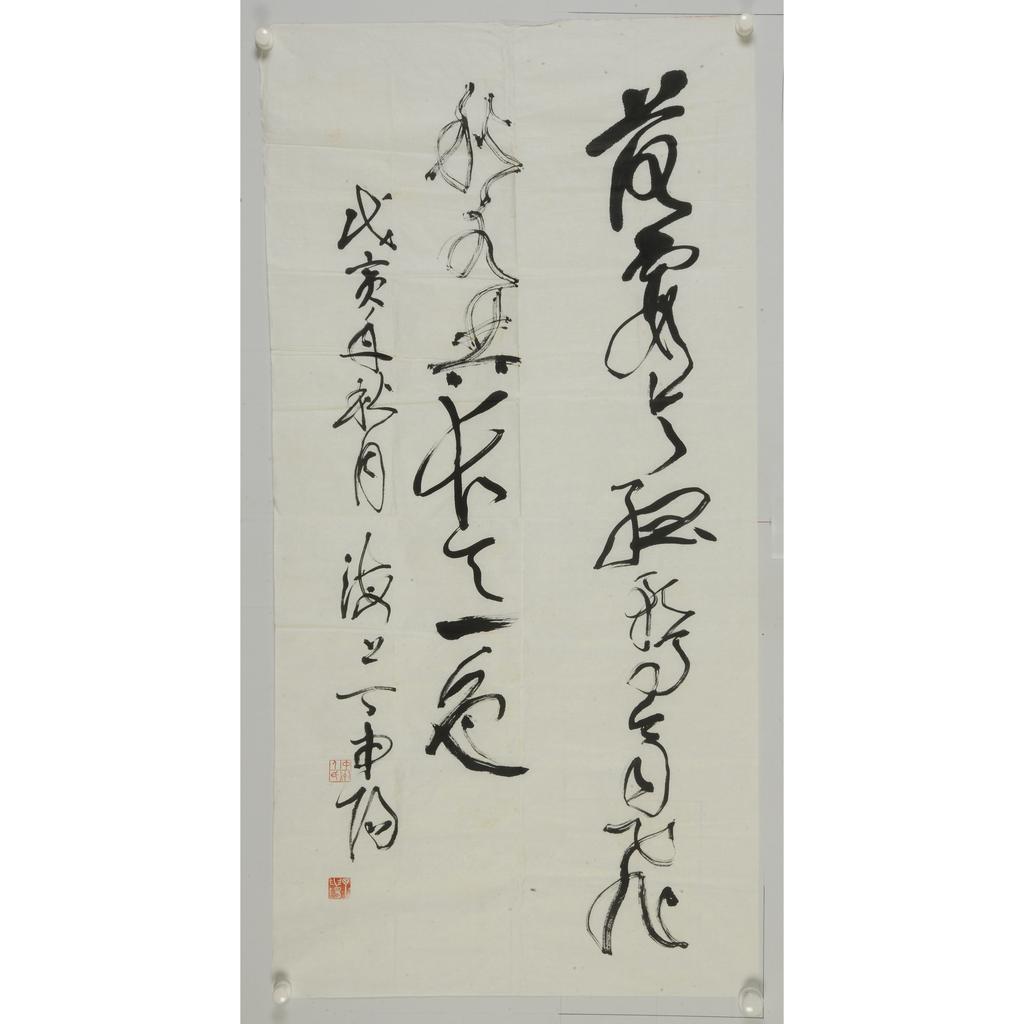 落霞与孤鹜齐飞
秋水共长天一色
戊寅年秋月 海上丁申阳